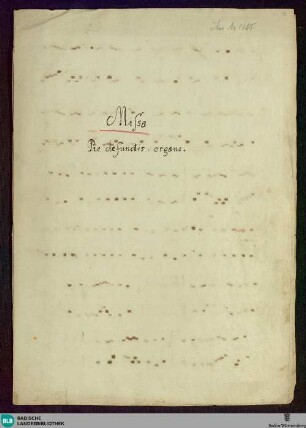 Missa
Pro defunctis. organo.
BLB
BADISCHE
LANDESBIBLIOTHEK
Baden-Württemberg